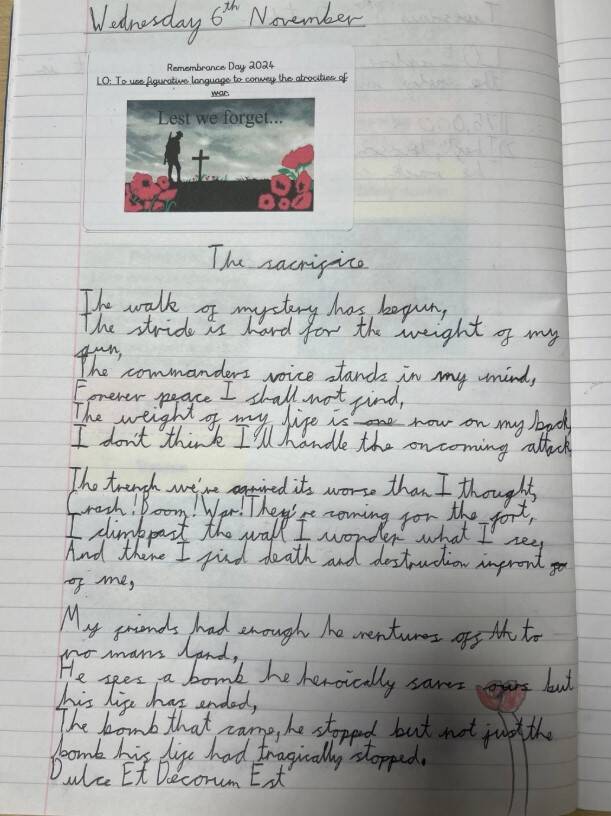 Wednesday 6th November
Remembrance Day 2024
LO: To use figurative language to convey the atrocities of
war.
Lest we forget...
The sacrifice
The walk of mystery has begun,
The stride is hard for the weight of my
gun,
The commanders voice stands in my mind,
Forever peace I shall not find,
The weight of my life is now on my back,
I don't think I'll handle the oncoming attack
The trench we've arrived its worse than I thought,
Crash! Boom! War! They're coming for the fort,
I climb past the wall I wonder what I see,
And there I find death and destruction infront
of me,
My friends had enough he ventures off to
no mans land,
He sees a bomb he heroically saves but
his life has ended,
The bomb that came, he stopped but not just the
bomb his life had tragically stopped.
Dulce Et Decorum Est